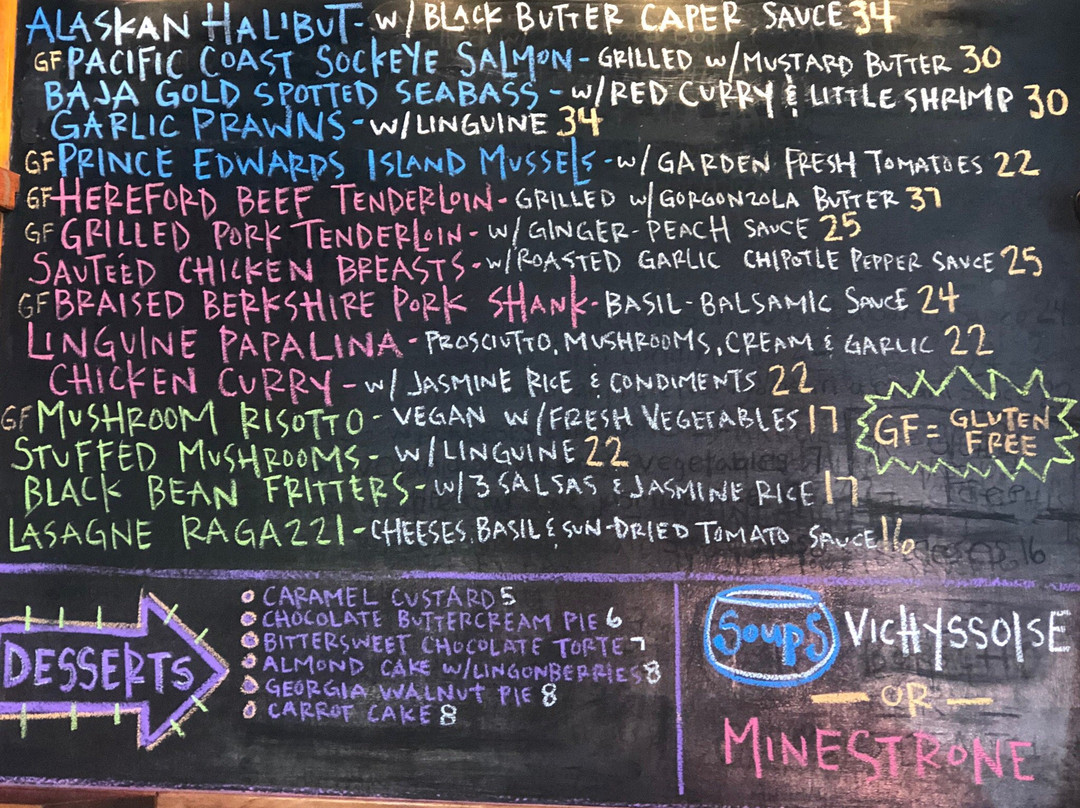 ALASKAN HALIBUT- W/BLACK BUTTER CAPER SAUCE 34
GF PACIFIC COAST SOCKEYE SALMON- GRILLED W/MUSTARD BUTTER 30
BAJA GOLD SPOTTED SEABASS- W/RED CURRY & LITTLE SHRIMP 30
GARLIC PRAWNS- W/LINGUINE 34
GF PRINCE EDWARDS ISLAND MUSSELS- W/GARDEN FRESH TOMATOES 22
GF HEREFORD BEEF TENDERLOIN- GRILLED W/GORGONZOLA BUTTER 37
GF GRILLED PORK TENDERLOIN- W/GINGER-PEACH SAUCE 25
SAUTÉED CHICKEN BREASTS- W/ROASTED GARLIC CHIPOTLE PEPPER SAUCE 25
GF BRAISED BERKSHIRE PORK SHANK- BASIL-BALSAMIC SAUCE 24
LINGUINE PAPALINA- PROSCIUTTO, MUSHROOMS, CREAM & GARLIC 22
CHICKEN CURRY- W/JASMINE RICE & CONDIMENTS 22
GF MUSHROOM RISOTTO- VEGAN W/FRESH VEGETABLES 17
STUFFED MUSHROOMS- W/LINGUINE 22
BLACK BEAN FRITTERS- W/3 SALSAS & JASMINE RICE 17
LASAGNE RAGAZZI- CHEESES, BASIL & SUN-DRIED TOMATO SAUCE 16
GF = GLUTEN
FREE
DESSERTS
CARAMEL CUSTARD 5
CHOCOLATE BUTTERCREAM PIE 6
BITTERSWEET CHOCOLATE TORTE 7
ALMOND CAKE W/LINGONBERRIES 8
GEORGIA WALNUT PIE 8
CARROT CAKE 8
SOUPS
VICHYSSOISE
OR
MINESTRONE